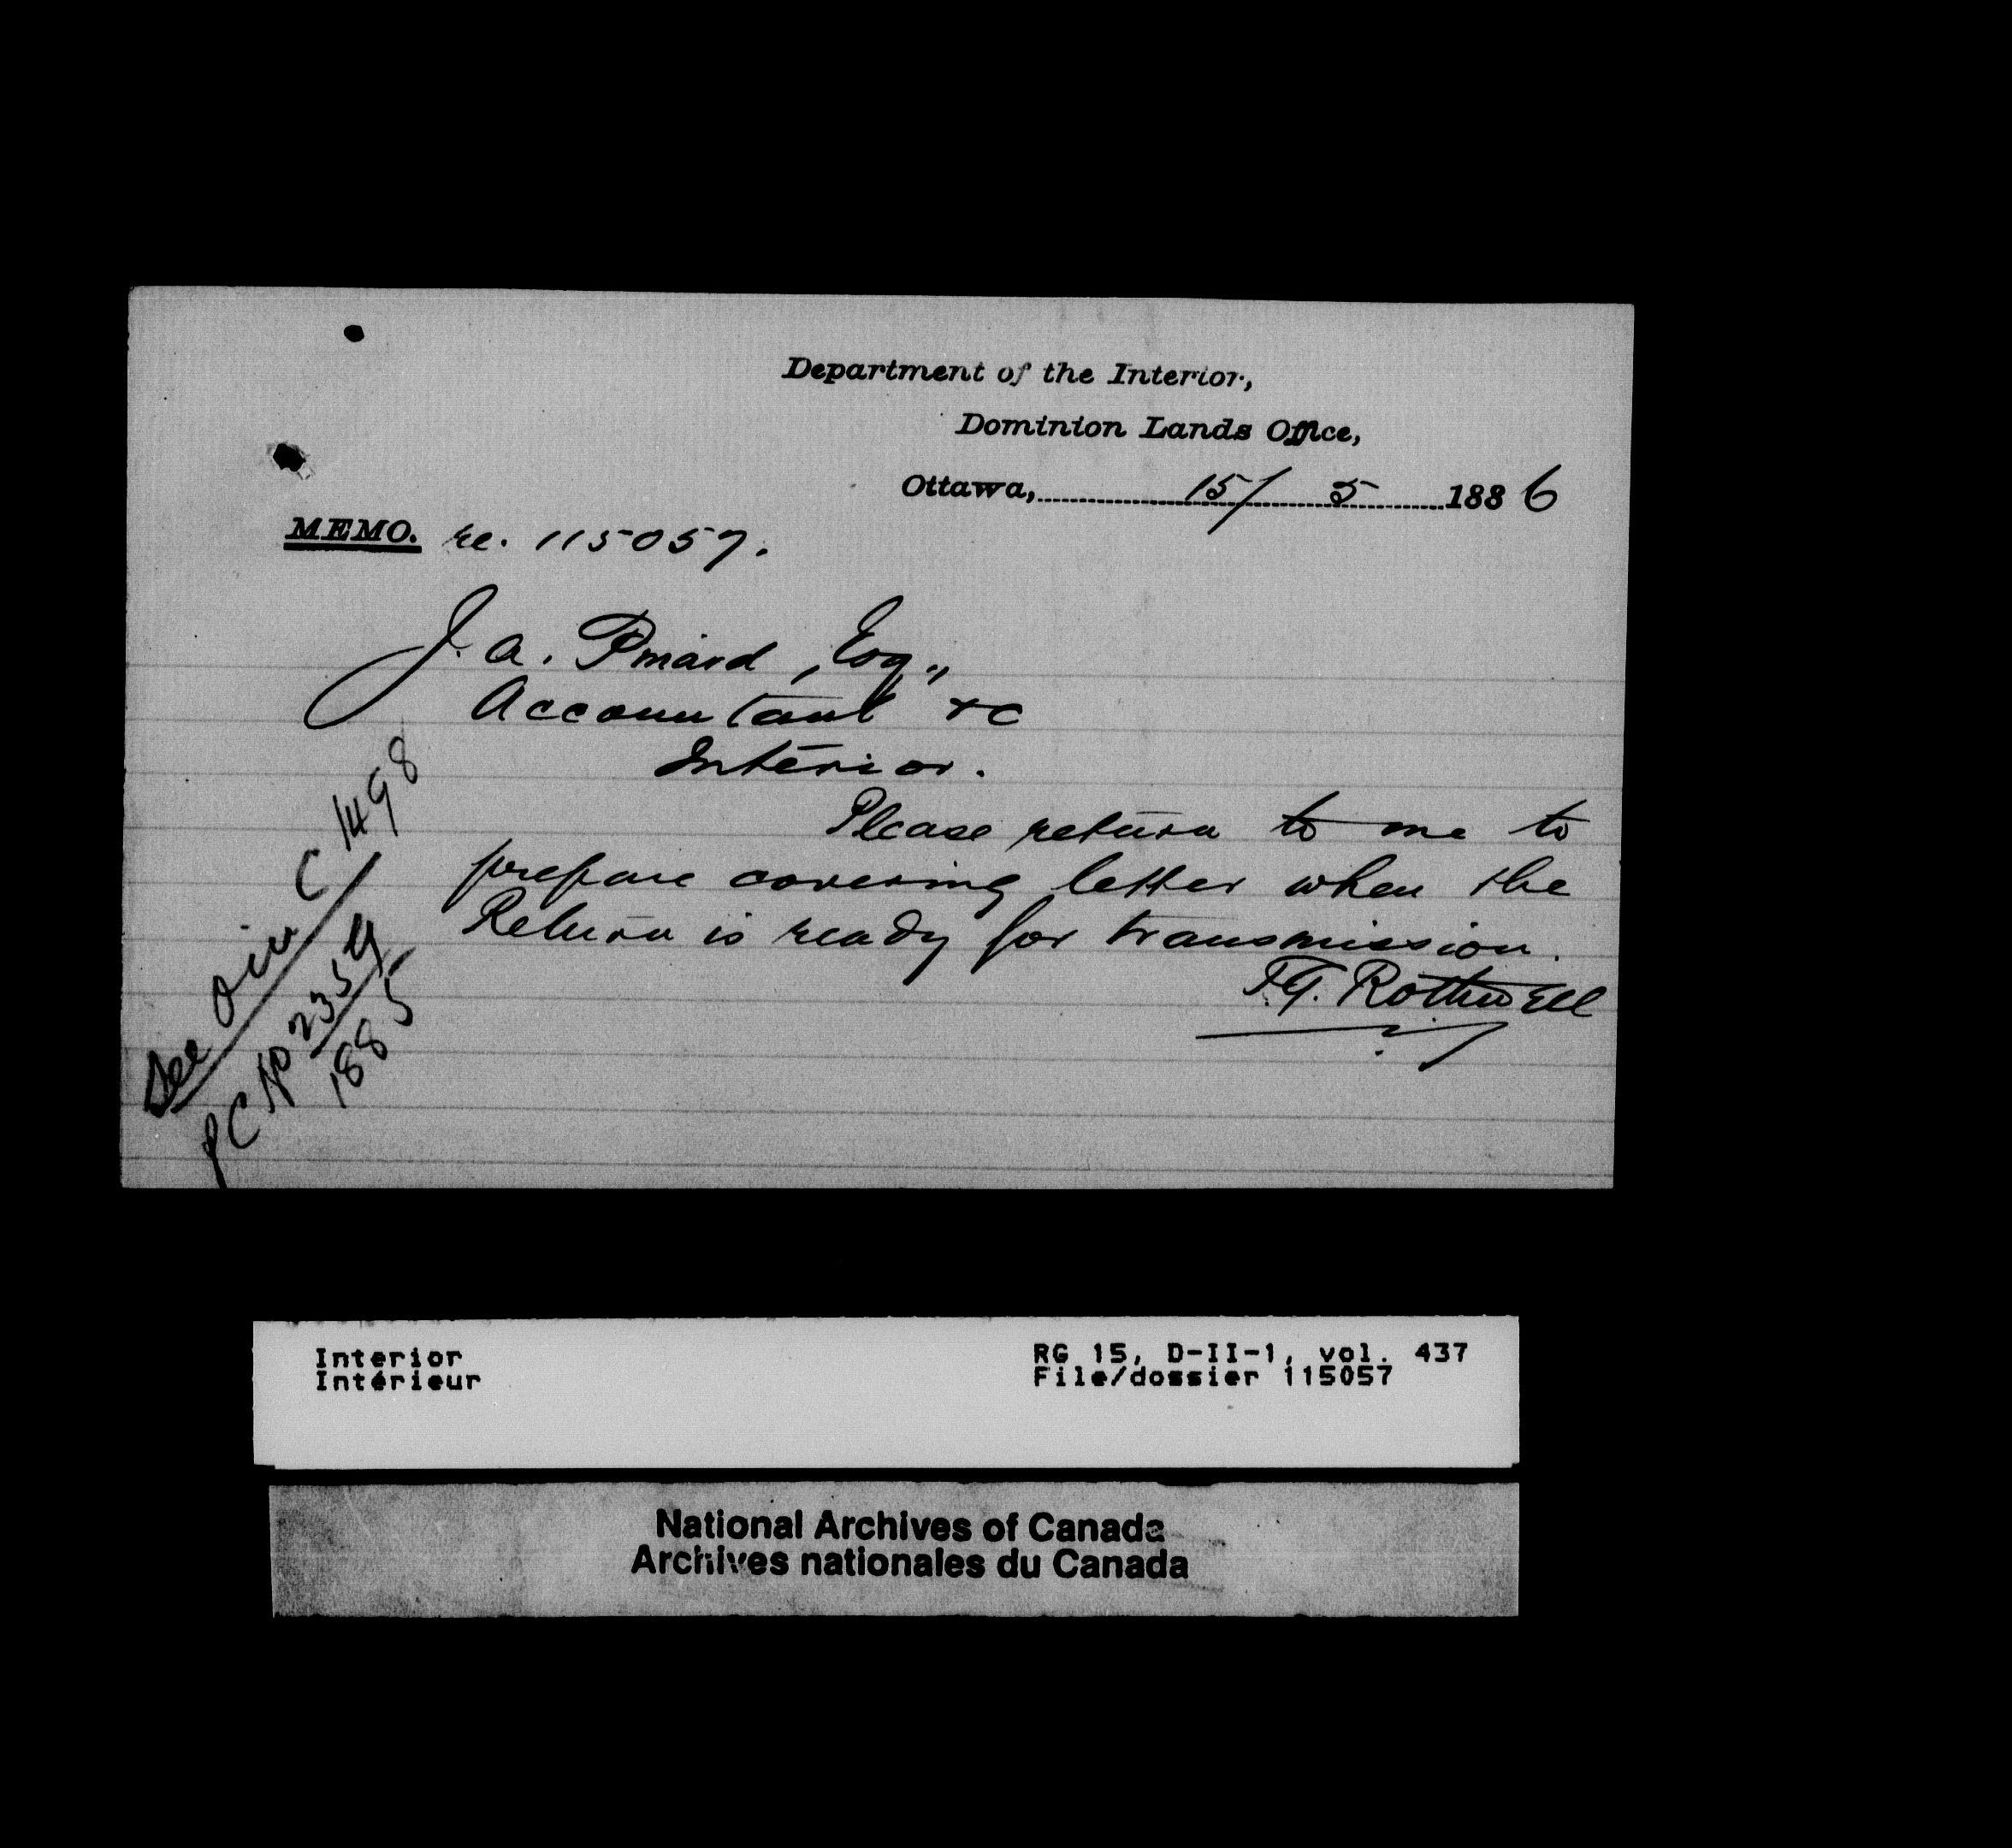 Department of the Interior,
Dominion Lands Office,
Ottawa, 15/ 5 1886
MEMO. re. 115057.
J. A. Pinard, Esq.,
Accountant &c
Interior.
Please return to me to
prepare covering letter when the
Return is ready for transmission.
T.G. Rothwell
See O in C 1498
PC No 2359
1885
Interior
Intérieur
RG 15, D-II-1, vol. 437
File/dossier 115057
National Archives of Canada
Archives nationales du Canada